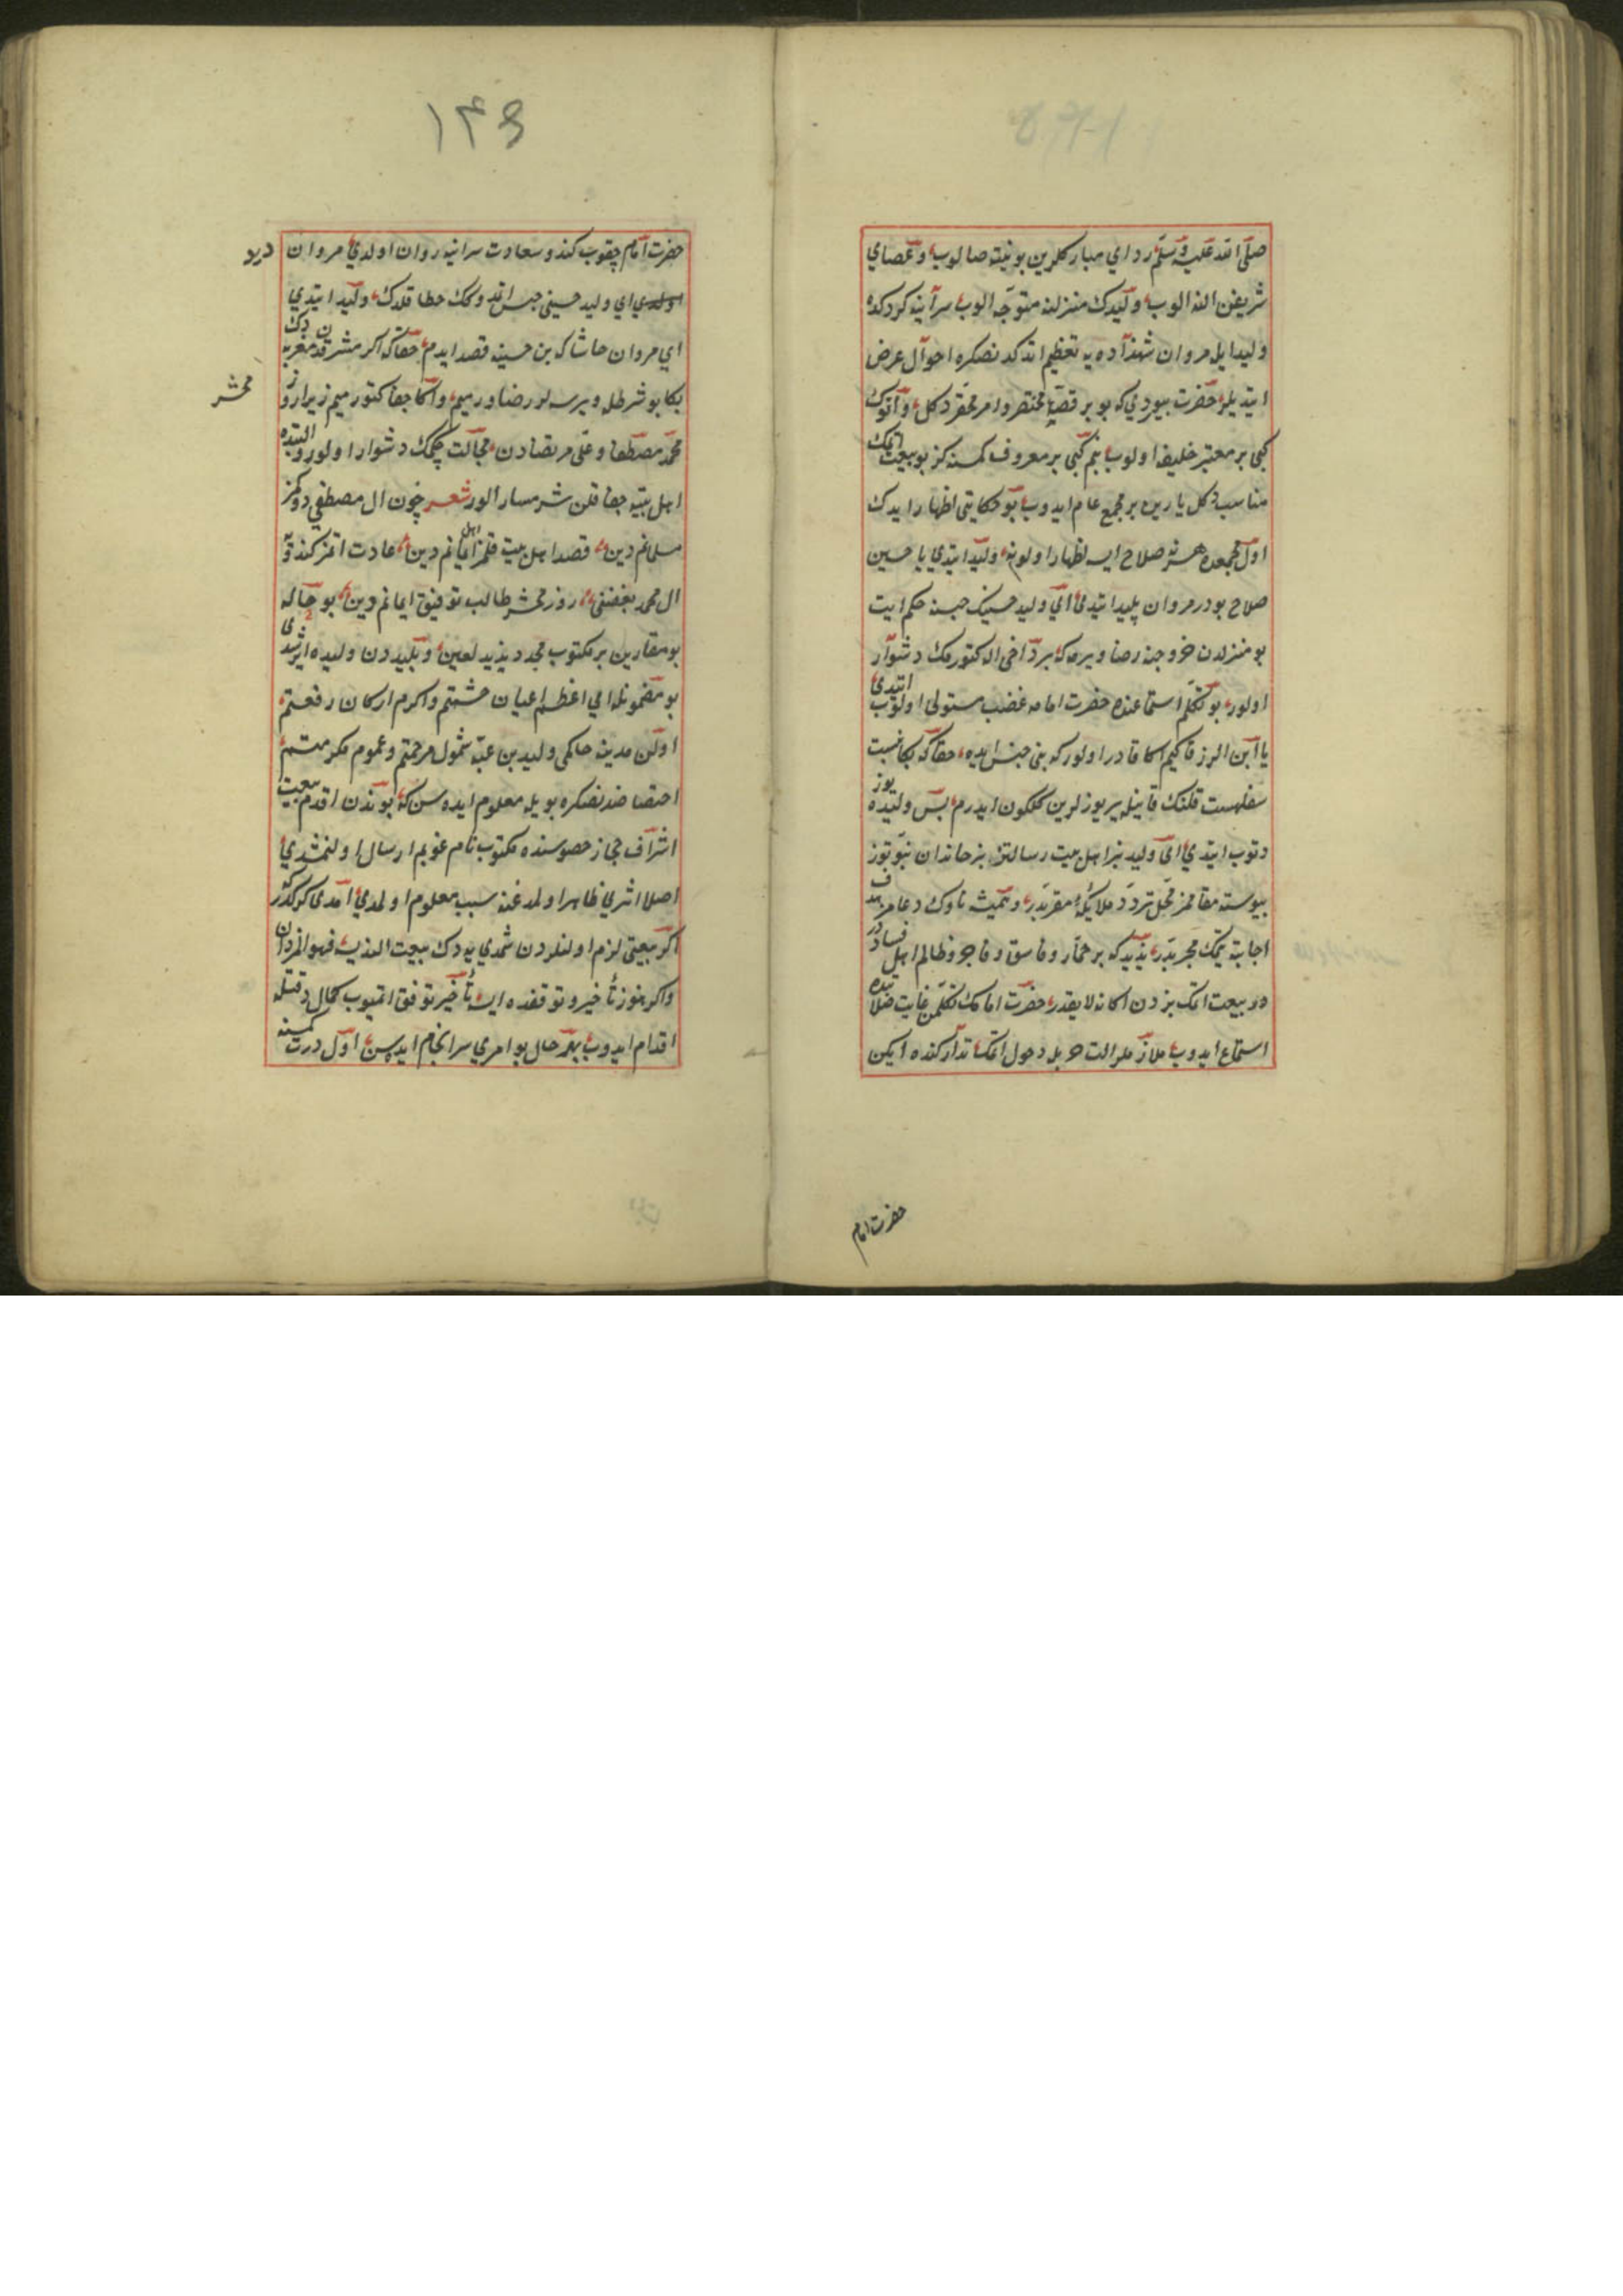 صلّی الله علیه وسلّم ردای مبارکلرین بوینینه صالوب و عصای
شریفن النه الوب ولیدك منزلنه متوجّه الوب سراینه کردکده
ولید ایله مروان شهزاده یه تعظیم اتدکدنصکره احوال عرض
ایتدیلر حضرت بیوردی که بو بر قضیّهٔ مختصر و امر محقر دکل و آنوك
کبی بر معتبر خلیفه اولوب بنم کبی بر معروف کمسنه کز بو بیعت اتمك
مناسب دکل یارین بر مجمع عام ایدوب بو حکایتی اظهار ایدك
اول مجمعده هر نه صلاح ایسه اظهار اولونه ولید ایتدی یا حسین
صلاح بودر مروان پلید ایتدی ای ولید حسینك حبسنه حکم ایت
بو منزلدن خروجنه رضا ویرمه که بر داخی اله کتورمك دشوار
اولور بو تکلّم استماعنده حضرت امامه غضب مستولی اولوب ایتدی
یا ابن الزرقا کیم اکا قادر اولور که بنی حبس ایده حقا که بکا نسبت
سفاهت قلنك قانیله یریوزلرین کلکون ایدرم پس ولیده یوز
دتوب ایتدی ای ولید بز اهل بیت رسالتز بز خاندان نبوتوز
پیوسته مقامز محل تردد ملائکهٔ مقربدر و همیشه ناوك دعامز هدف
اجابته یتمك مجربدر یزید که بر خمّار و فاسق و فاجر و ظالم اهل فساددر
بیعت اتمك بزدن اکا نه لایقدر حضرت امامك تکلّمن غایت
استماع ایدوب ملازملر الت حربله دخول اتمکا تدارکنده ایکن
حضرت امام
١٤٩
حضرت امام چقوب کندو سعادت سراینه روان اولدی مروان
ای ولید حسینی حبس اتدوکك خطا قلدك ولید ایتدی
ای مروان حاشا که بن حسینه قصد ایدم حقا که اکر مشرقدن مغربه دك
بکا بو شرطله ویرسه لر رضا ویرمیم و اکا جفا کتورمیم زیرا روز
محشر
محمد مصطفا و علی مرتضادن خجالت چکمك دشوار اولور و البتده
اهل بیته جفا قلن شرمسار الور شعر چون ال مصطفی دوکز
مسلمانم دین قصد اهل بیت قلمز اهل ایمانم دین عادت اتمز کندویه
ال محمد بغضنی روز محشر طالب توفیق ایمانم دین بو حاله
بو مقارین بر مکتوب مجدد یزید لعین و پلیددن ولیده ایرشدی
بو مضمونله ای اعظم اعیان حشمتم و اکرم ارکان رفعتم
اولن مدینه حاکمی ولید بن عتبه شمول مرحمتم و عموم مکرمتم
اختصاصندنصکره بویله معلوم ایده سن که بوندن اقدم بیعت
اشراف حجاز خصوصنده مکتوب نام غوبم ارسال اولنمشدی
اصلا اثری ظاهر اولمدغنه سبب معلوم اولمدی امدی کرکدر که
اکر بیعتی لازم اولنلردن شمدی یه دك بیعت الندیسه فهو المراد
واکر هنوز تأخیر و توقفده ایسه تأخیر توقف اتمیوب کمال دقتله
اقدام ایدوب بهر حال بو امری سرانجام ایده سن اول درت کمسنه